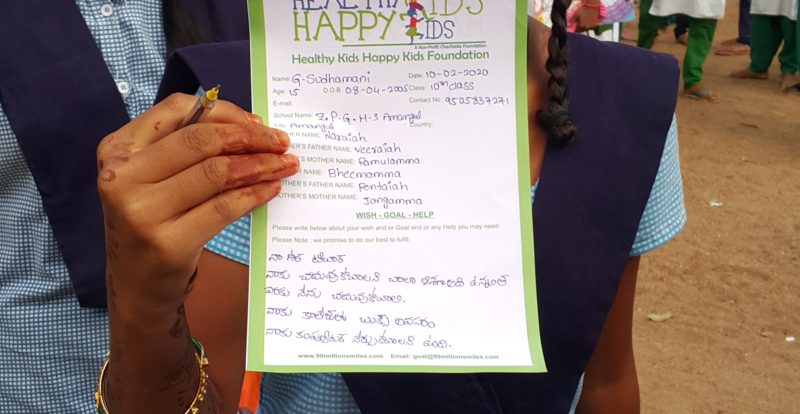 HEALTHY KIDS
HAPPY KIDS
A Non-Profit Charitable Foundation
Healthy Kids Happy Kids Foundation
Name: G. Sudhamani Date: 10-02-2020
Age: 15 D.O.B 08-04-2005 Class: 10th class
E-mail: Contact No 9505837271
School Name: Z.P.G.H.S Amangal
Amangal Country:
NAME: Naraiah
HER'S FATHER NAME: Veeraiah
HER'S MOTHER NAME: Ramulamma
NAME: Bheemamma
MOTHER'S FATHER NAME: Pentaiah
MOTHER'S MOTHER NAME: Jangamma
WISH - GOAL - HELP
Please write below about your wish and or Goal and or any Help you may need:
Please Note : we promise to do our best to fulfil:
నా గోల్ టీచార్
నాకు చదువుకోవాలనే చాలా ఉంది
వరకు నేను చదువుకోవాలి.
నాకు కాలేజీలో బుక్స్ అవసరం
నాకు కంప్యూటర్ నేర్చుకోవాలని ఉంది.
www.90millionsmiles.com Email: goal@90millionsmiles.com